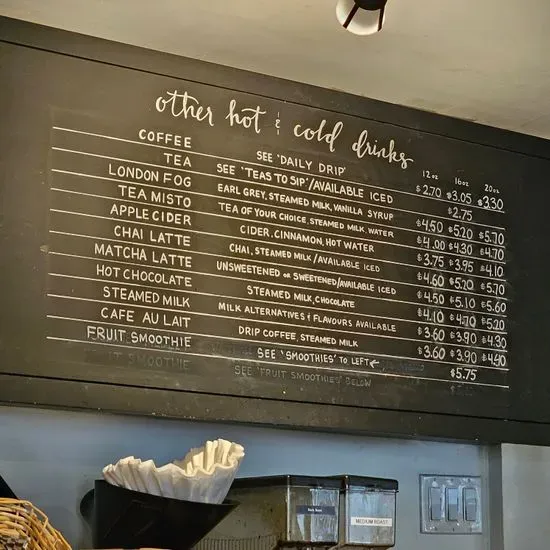 other hot & cold drinks
12 oz 16 oz 20 oz
COFFEE SEE 'DAILY DRIP' $2.70 $3.05 $3.30
TEA SEE 'TEAS TO SIP'/AVAILABLE ICED $2.75
LONDON FOG EARL GREY, STEAMED MILK, VANILLA SYRUP $4.50 $5.20 $5.70
TEA MISTO TEA OF YOUR CHOICE, STEAMED MILK, WATER $4.00 $4.30 $4.70
APPLE CIDER CIDER, CINNAMON, HOT WATER $3.75 $3.95 $4.10
CHAI LATTE CHAI, STEAMED MILK/AVAILABLE ICED $4.60 $5.20 $5.70
MATCHA LATTE UNSWEETENED or SWEETENED/AVAILABLE ICED $4.50 $5.10 $5.60
HOT CHOCOLATE STEAMED MILK, CHOCOLATE $4.10 $4.70 $5.20
STEAMED MILK MILK ALTERNATIVES & FLAVOURS AVAILABLE $3.60 $3.90 $4.30
CAFE AU LAIT DRIP COFFEE, STEAMED MILK $3.60 $3.90
FRUIT SMOOTHIE SEE 'SMOOTHIES' TO LEFT ← $5.75
FRUIT SMOOTHIE SEE 'FRUIT SMOOTHIES' BELOW
MEDIUM ROAST